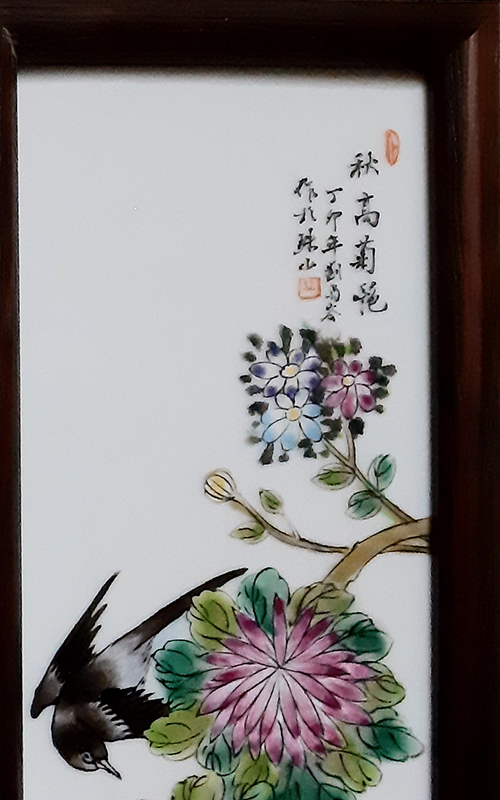 秋高菊艳
丁卯年劉雨岑
作於珠山